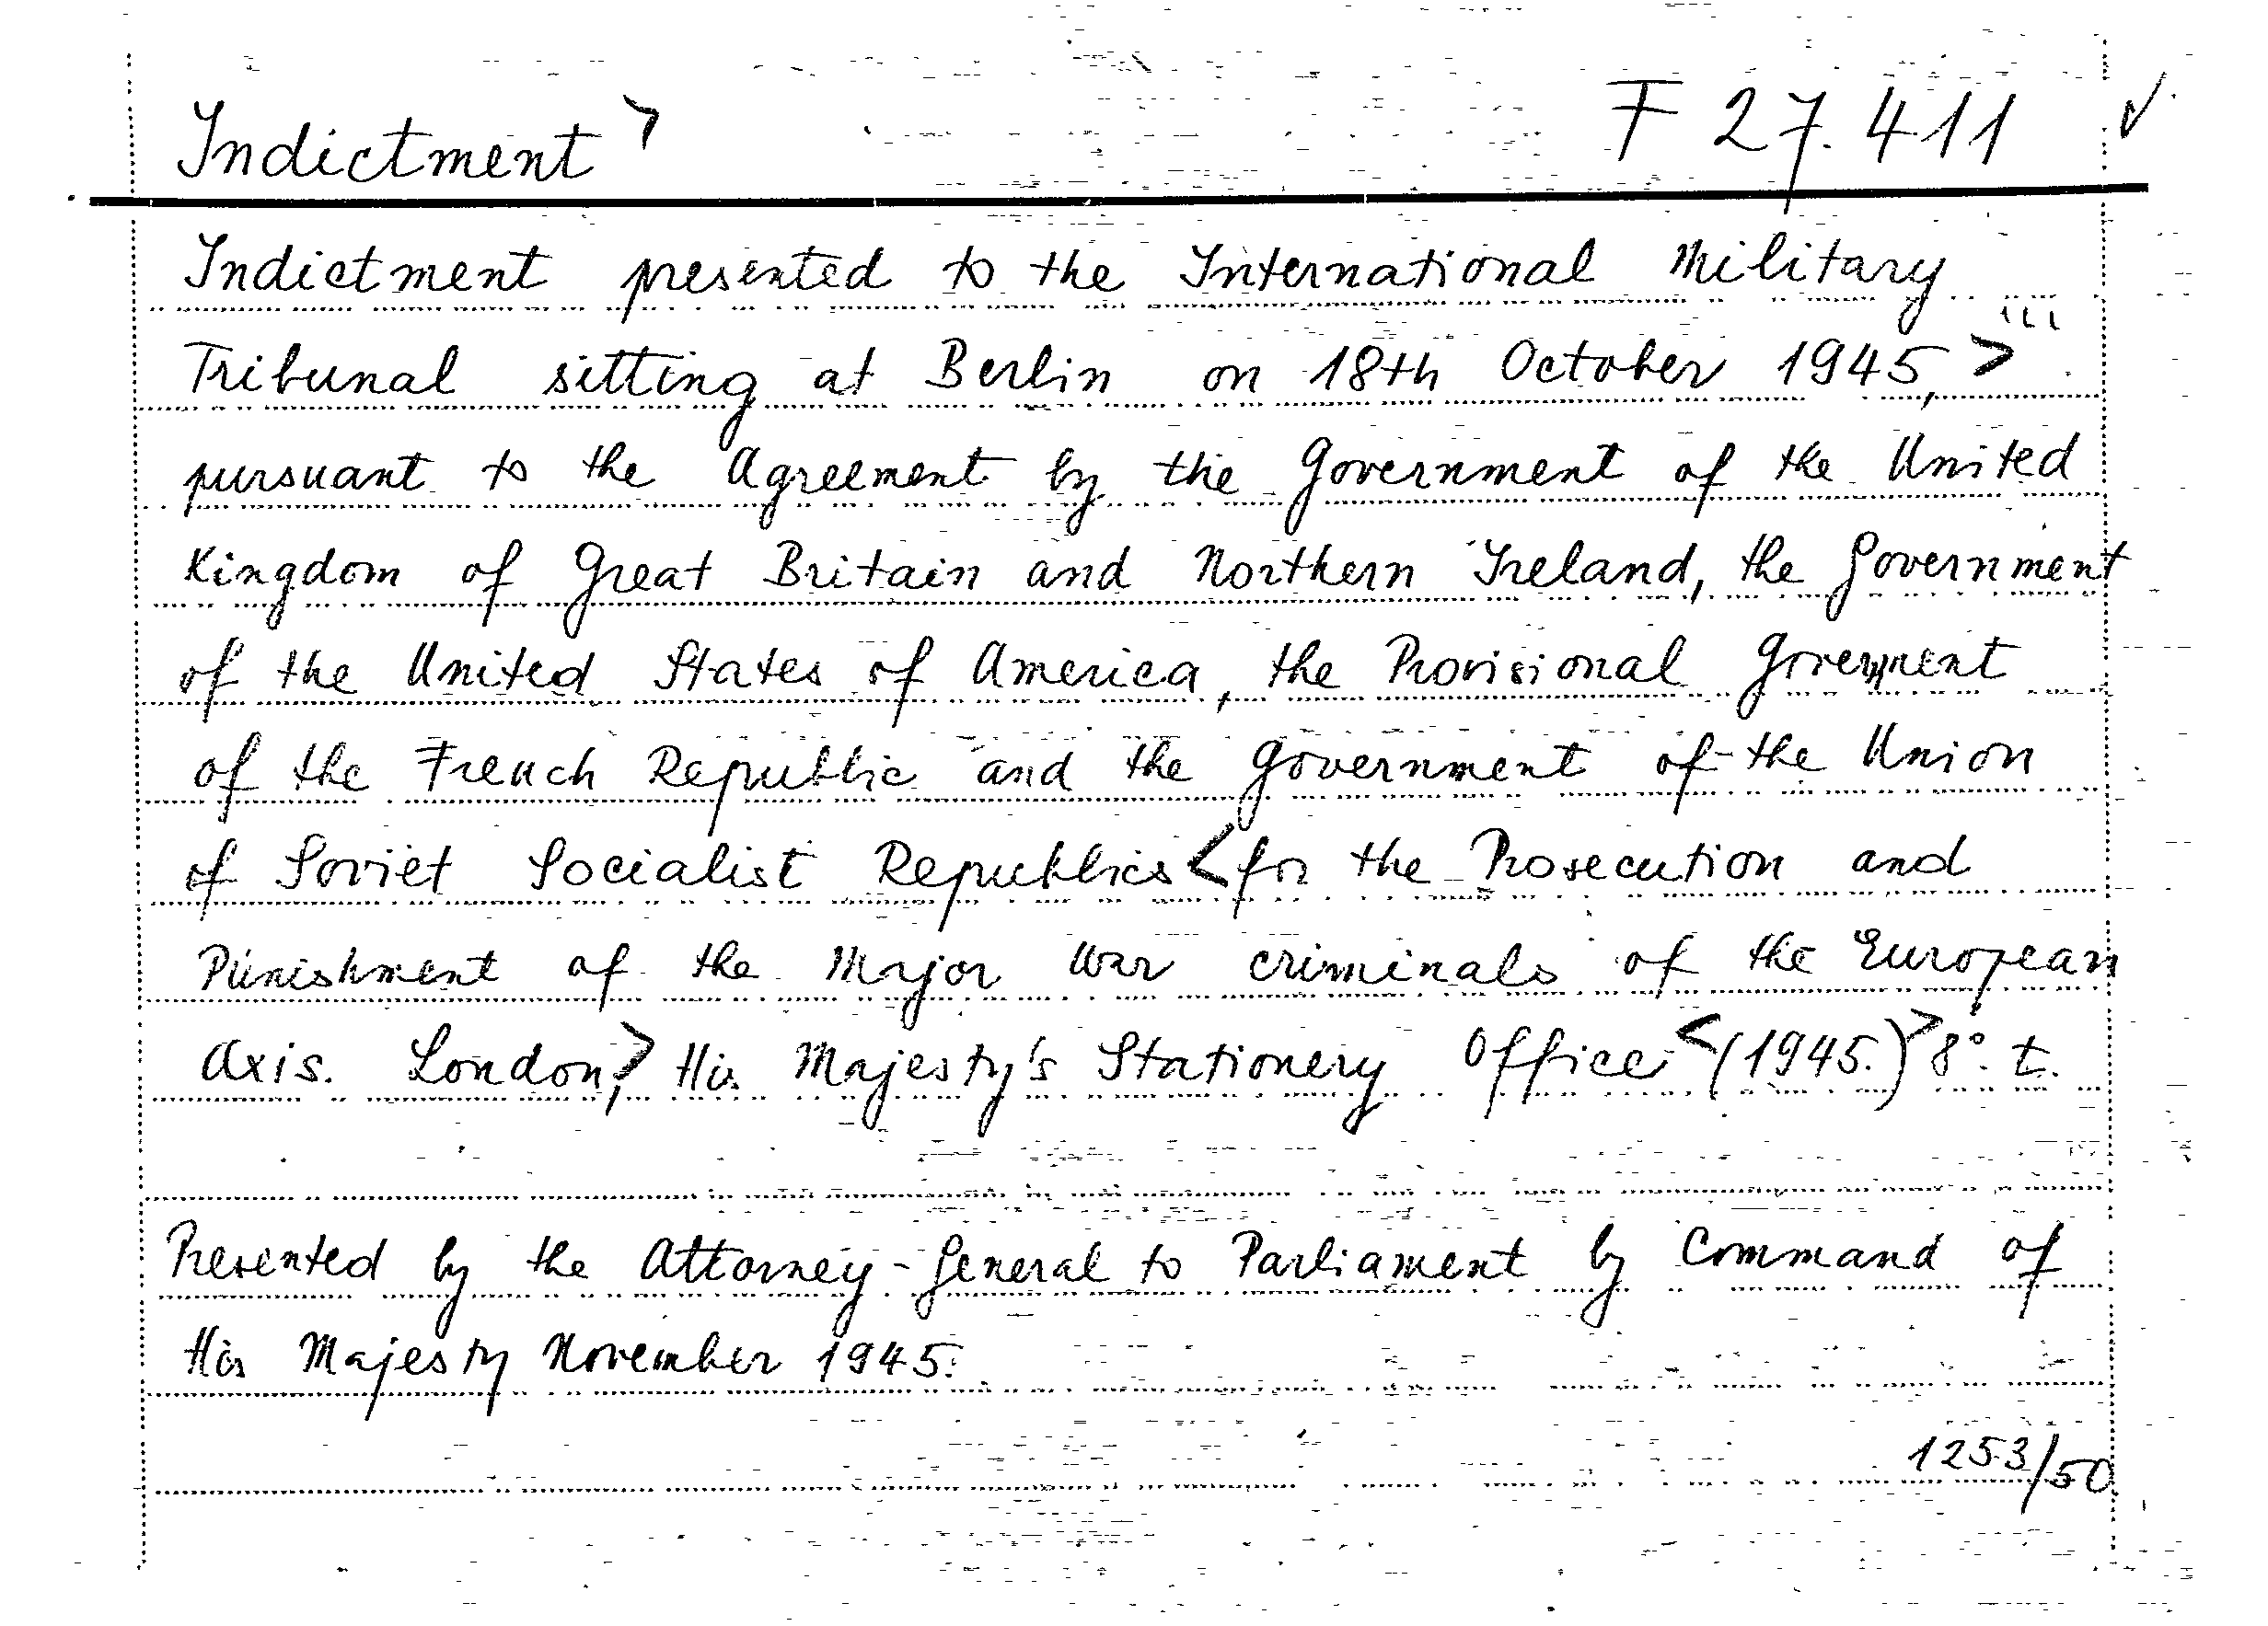 Indictment > F 27.411 ✓
Indictment presented to the International Military
Tribunal sitting at Berlin on 18th October 1945, >
pursuant to the Agreement by the Government of the United
Kingdom of Great Britain and Northern Ireland, the Government
of the United States of America, the Provisional Goverment
of the French Republic and the Government of the Union
of Soviet Socialist Republics < for the Prosecution and
Punishment of the Major War criminals of the European
Axis. London, > His Majesty's Stationery Office < (1945.) > 8°. t.
Presented by the Attorney-General to Parliament by Command of
His Majesty November 1945.
1253/50